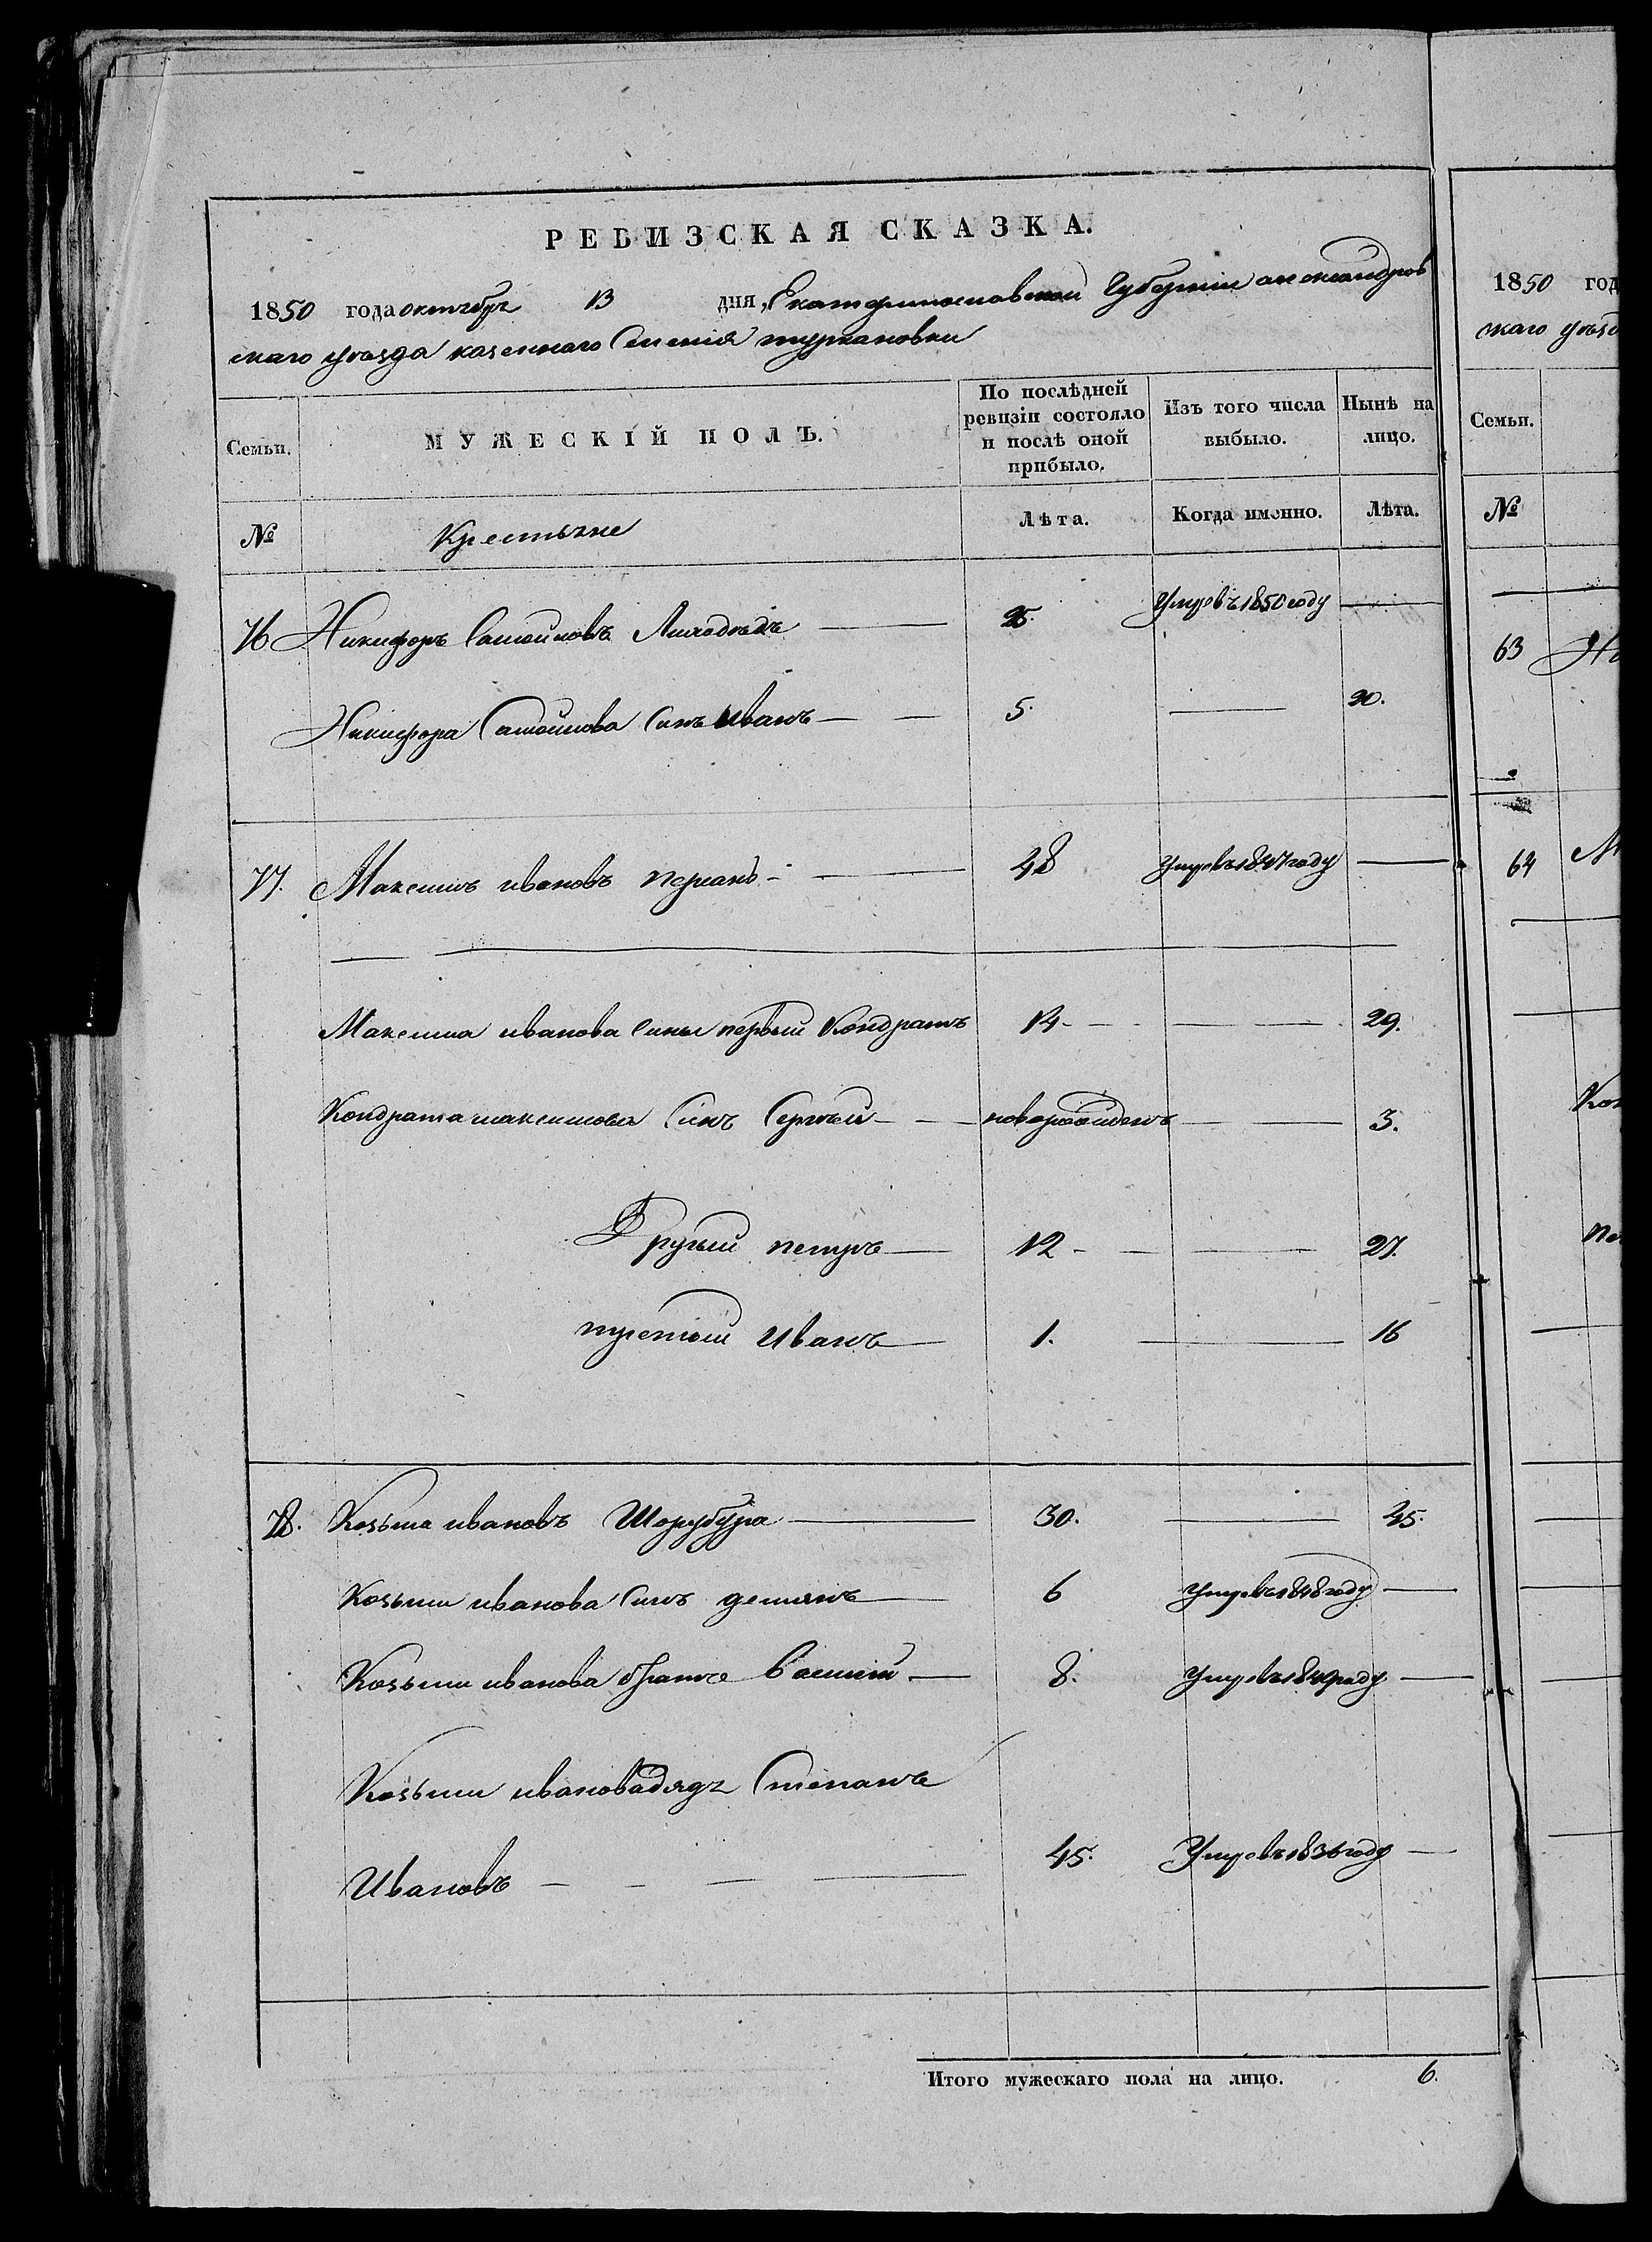 РЕВИЗСКАЯ СКАЗКА.
1850 года октября 13 дня, Екатеринославской Губернии александров
скаго уѣзда казеннаго Селенія туркановки
Семьи.
МУЖЕСКІЙ ПОЛЪ.
По послѣдней ревизіи состояло и послѣ оной прибыло.
Изъ того числа выбыло.
Нынѣ на лицо.
№
Крестьяне
Лѣта.
Когда именно.
Лѣта.
76 Никифоръ Самойловъ 25. Умеръ въ 1850 году —
Никифора Самойлова Синъ Иванъ — — 5. — 20.
77. Максимъ ивановъ — 48 умеръ въ 1847 году —
Максима иванова Сины первый Кондратъ 14 — — 29.
Кондрата максимова Синъ Сергѣй — — новорожденъ — 3.
Другый петръ — 12 — — 27.
третый Иванъ — 1. — 16
78. Козьма ивановъ Шорубура — 30. — 45.
Козьмы иванова Синъ демянъ — 6 умеръ въ 1848 году —
Козьмы иванова братъ Василий — 8. умеръ въ 1849 году —
Козьмы иванова дядя Степанъ
Ивановъ — — — 45. Умеръ въ 1836 году —
Итого мужескаго пола на лицо. 6.
1850 год
скаго уѣзд
Семьи.
№
63
64